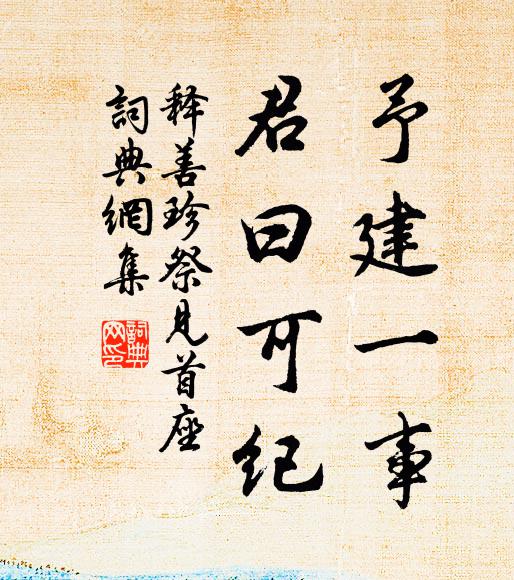 予建一事
君曰可纪
释善珍祭见首座
詞典網集
詞典网印